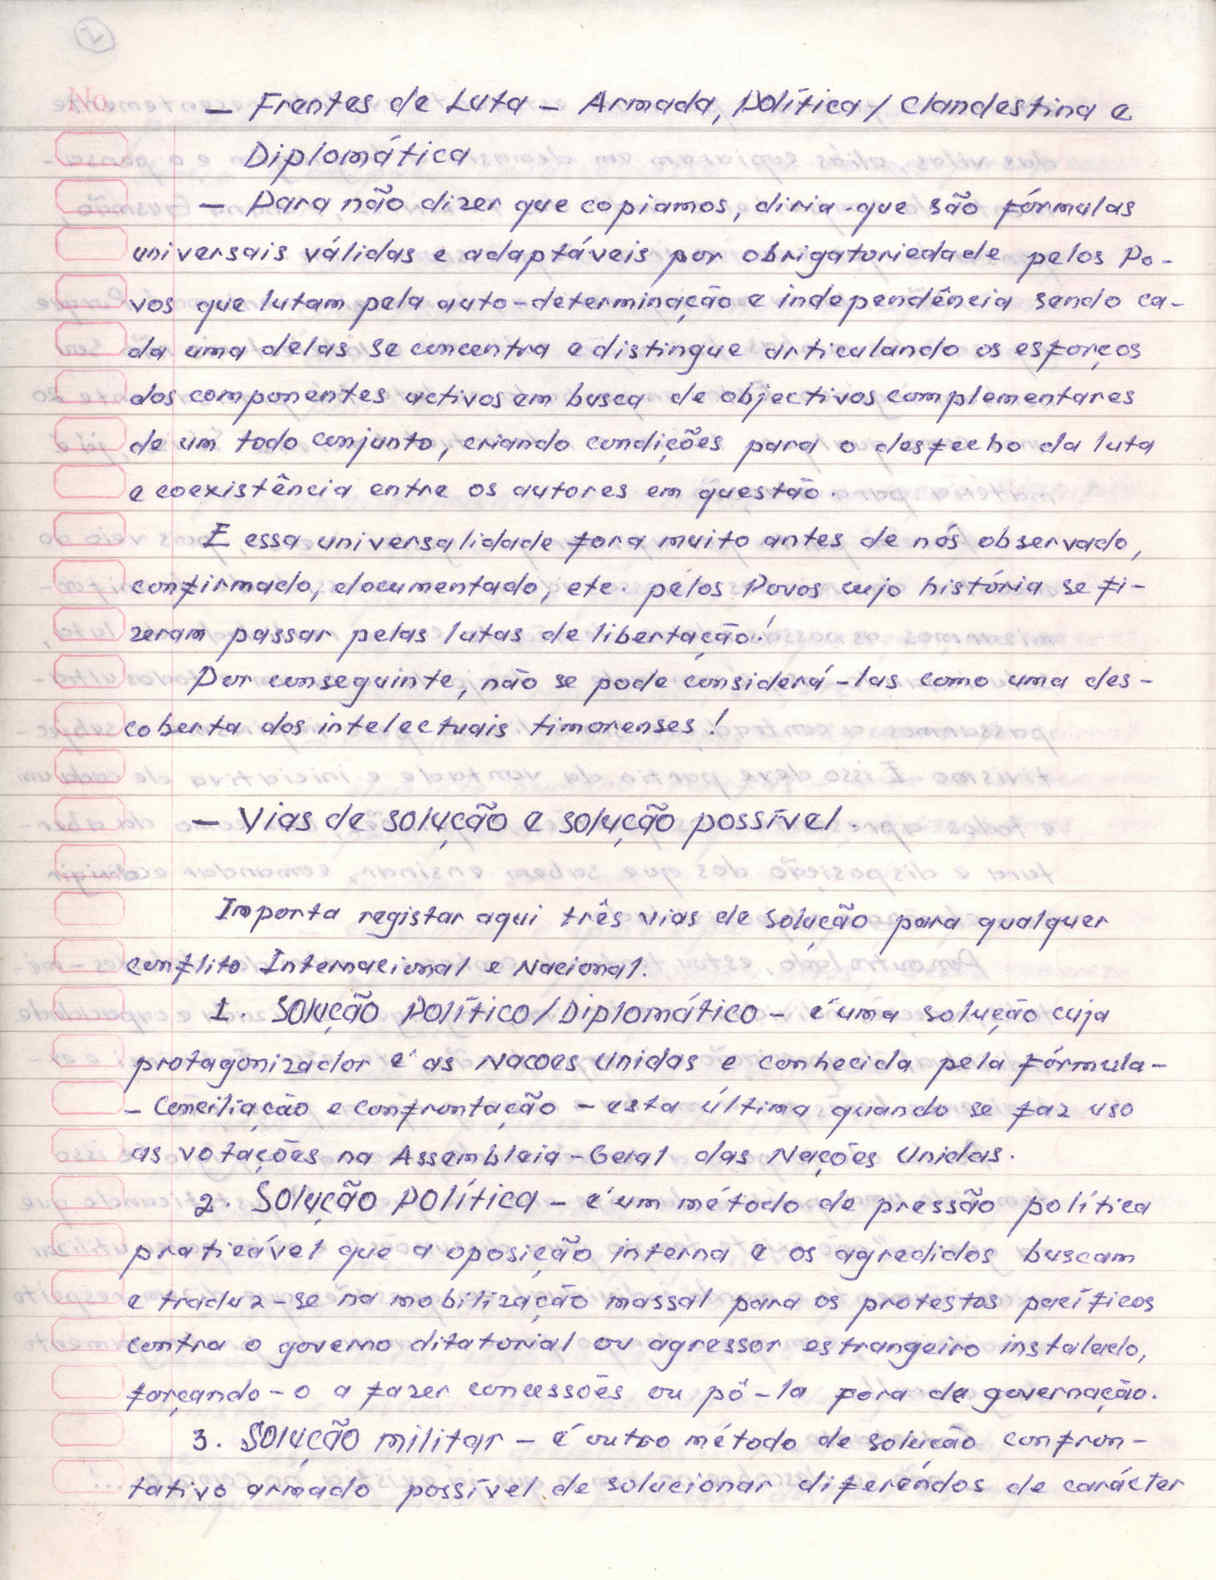 — Frentes de Luta — Armada, Política / Clandestina e
Diplomática
— Para não dizer que copiamos, diria-que são fórmulas
universais válidas e adaptáveis por obrigatoriedade pelos Po-
vos que lutam pela auto-determinação e independência sendo ca-
da uma delas se concentra e distingue articulando os esforços
dos componentes activos em busca de objectivos complementares
de um todo conjunto, criando condições para o desfecho da luta
e coexistência entre os autores em questão.
E essa universalidade fora muito antes de nós observado,
confirmado, documentado, etc. pelos Povos cujo história se fi-
zeram passar pelas lutas de libertação!
Por conseguinte, não se pode considerá-las como uma des-
coberta dos intelectuais timorenses!
— Vias de solução e solução possível.
Importa registar aqui três vias de solução para qualquer
conflito Internacional e Nacional.
1. Solução Político/Diplomático — é uma solução cuja
protagonizador é as Nacoes Unidas e conhecida pela fórmula-
- Conciliação e confrontação — esta última quando se faz uso
as votações na Assembleia-Geral das Nações Unidas.
2. Solução Política — é um método de pressão política
praticável que a oposição interna e os agredidos buscam
e traduz-se na mobilização massal para os protestos pacíficos
contra o governo ditatorial ou agressor estrangeiro instalado,
forçando-o a fazer concessões ou pô-la fora da governação.
3. Solução militar — é outro método de solução confron-
tativo armado possível de solucionar diferéndos de carácter